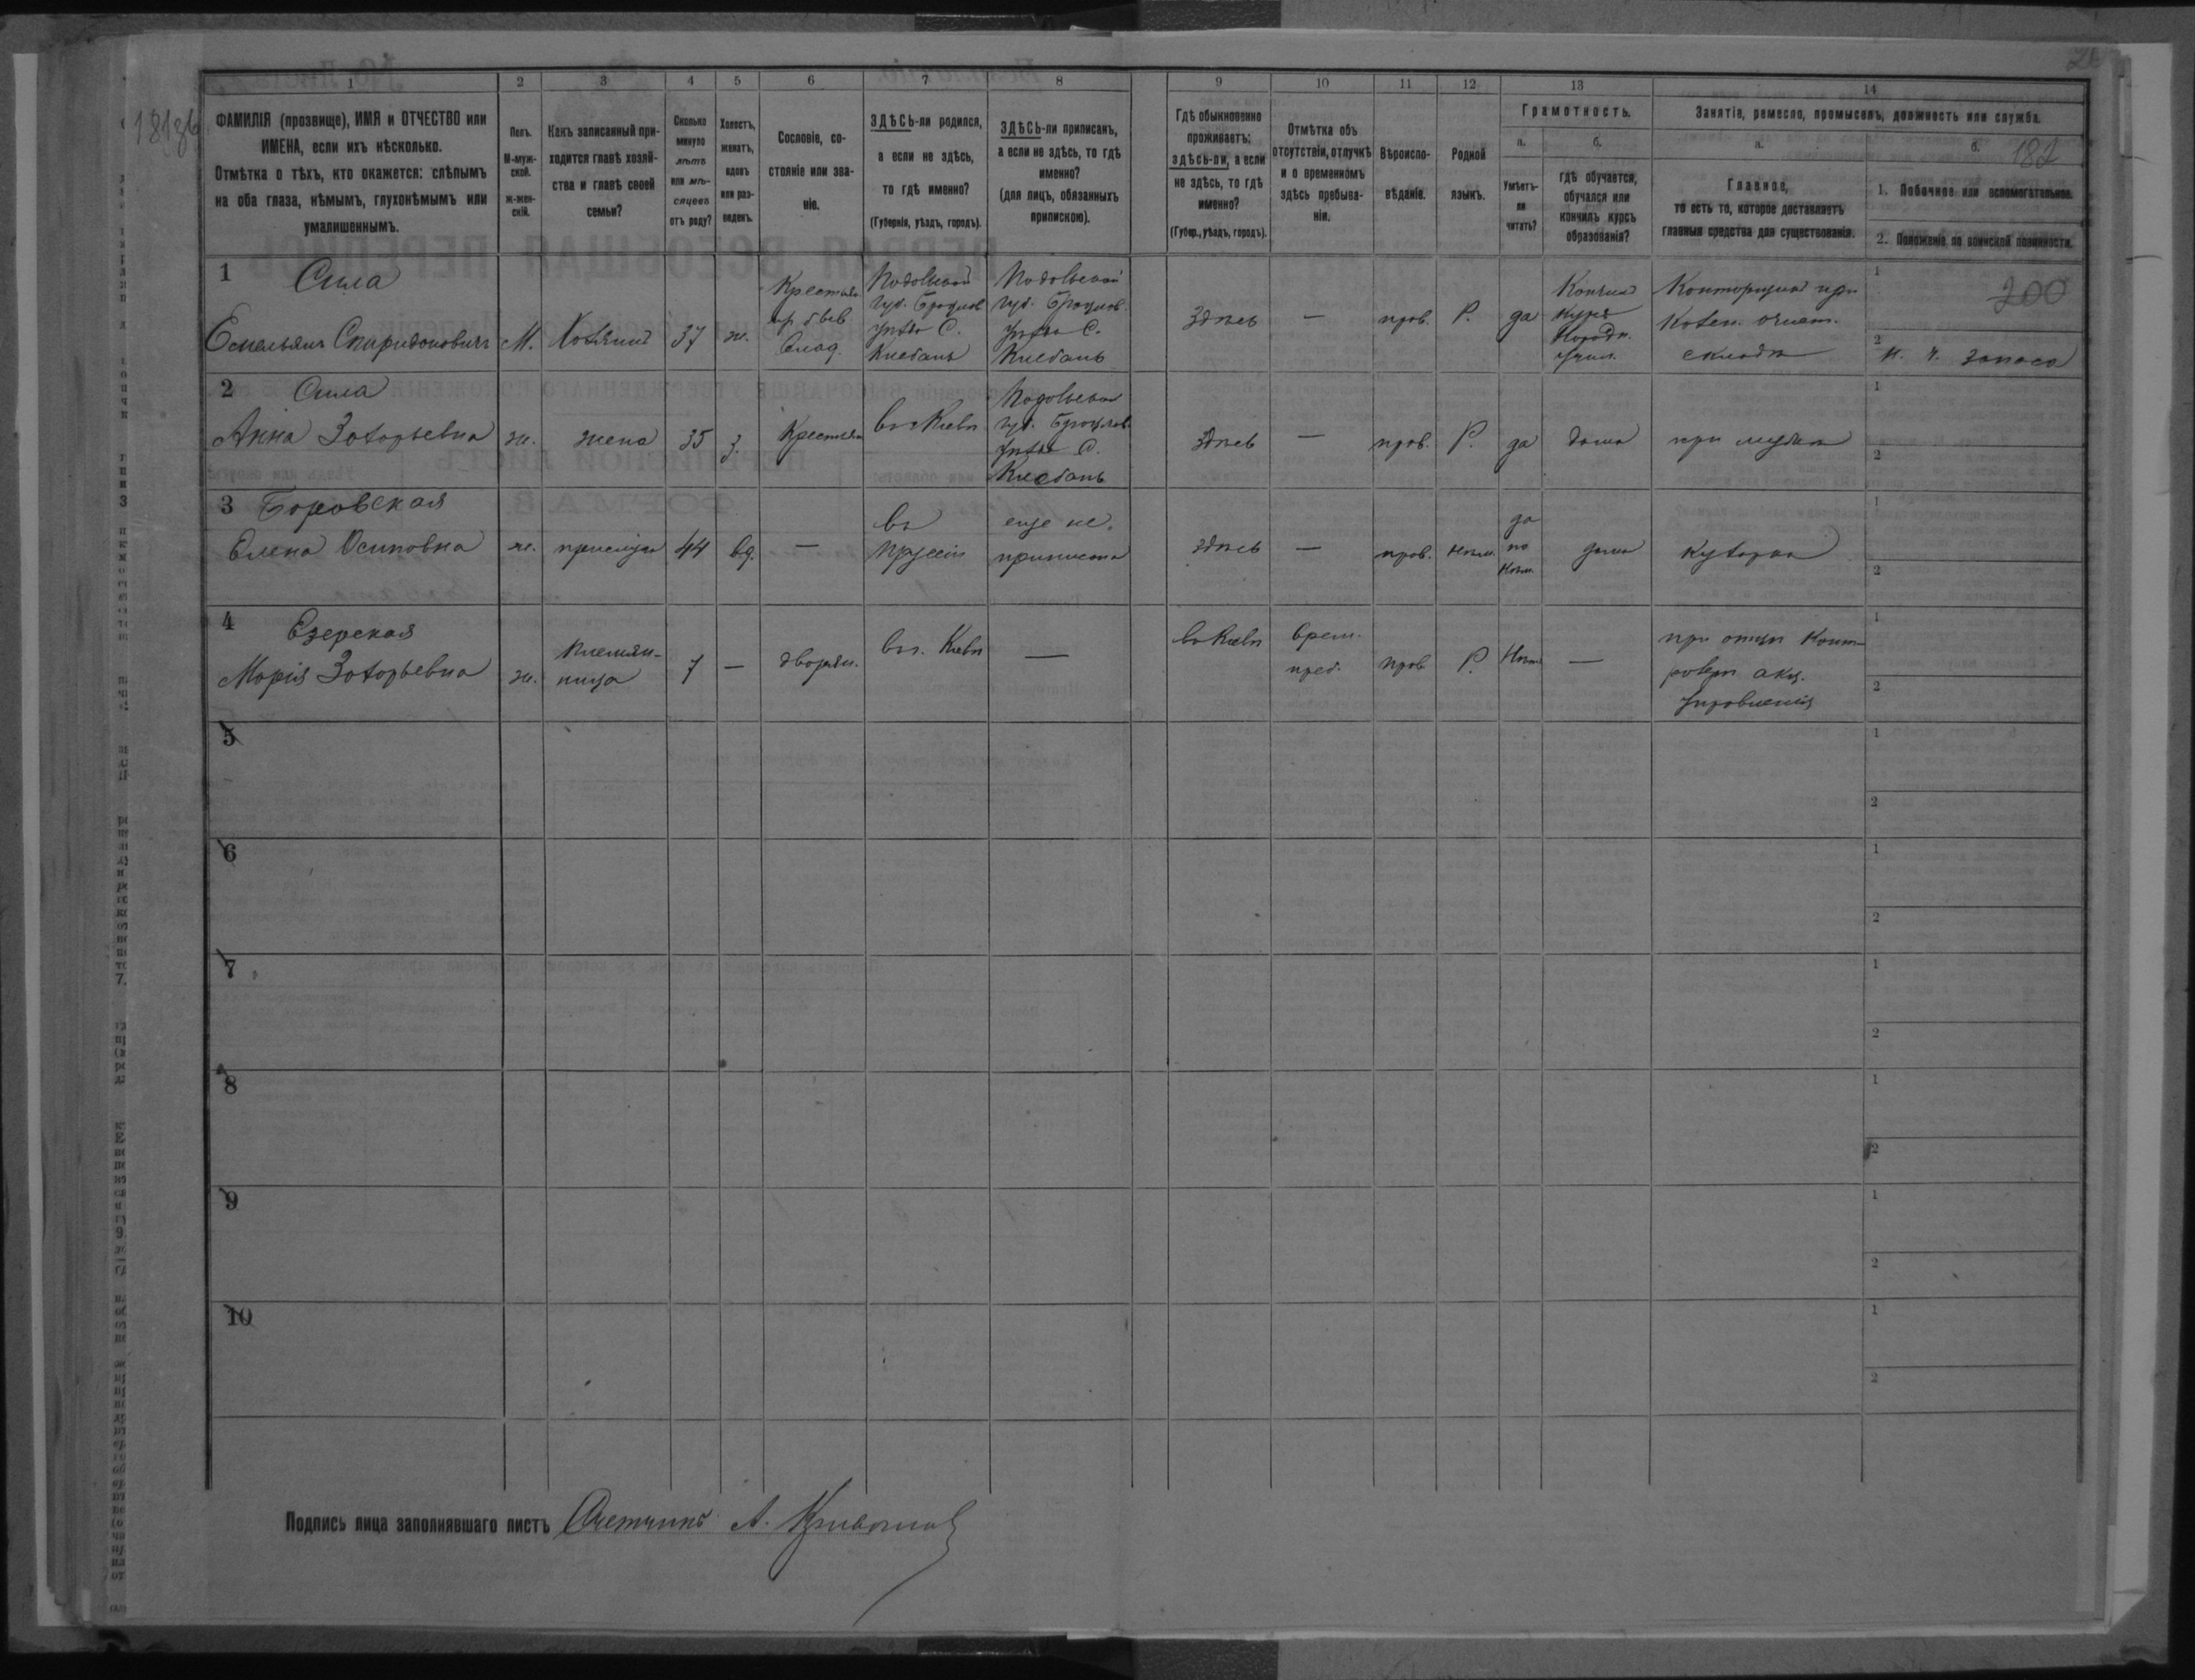 18136
182
200
1 2 3 4 5 6 7 8 9 10 11 12 13 14
ФАМИЛІЯ (прозвище), ИМЯ и ОТЧЕСТВО или
ИМЕНА, если ихъ нѣсколько.
Отмѣтка о тѣхъ, кто окажется: слѣпымъ
на оба глаза, нѣмымъ, глухонѣмымъ или
умалишеннымъ.
Полъ.
М-муж-
ской.
ж-жен-
скій.
Какъ записанный при-
ходится главѣ хозяй-
ства и главѣ своей
семьи?
Сколько
минуло
лѣтъ
или мѣ-
сяцевъ
отъ роду?
Холостъ,
женатъ,
вдовъ
или раз-
веденъ.
Сословіе, со-
стояніе или зва-
ніе.
ЗДѢСЬ-ли родился,
а если не здѣсь,
то гдѣ именно?
(Губернія, уѣздъ, городъ).
ЗДѢСЬ-ли приписанъ,
а если не здѣсь, то гдѣ
именно?
(для лицъ, обязанныхъ
припискою).
Гдѣ обыкновенно
проживаетъ:
здѣсь-ли, а если
не здѣсь, то гдѣ
именно?
(Губер., уѣздъ, городъ).
Отмѣтка объ
отсутствіи, отлучкѣ
и о временномъ
здѣсь пребыва-
ніи.
Вѣроиспо-
вѣданіе.
Родной
языкъ.
Грамотность.
а.
Умѣетъ-
ли
читать?
б.
гдѣ обучается,
обучался или
кончилъ курсъ
образованія?
Занятіе, ремесло, промыселъ, должность или служба.
а.
Главное,
то есть то, которое доставляетъ
главныя средства для существованія.
б.
1. Побочное или вспомогательное.
2. Положеніе по воинской повинности.
1 Сила
Емельянъ Спиридоновичъ
М.
Хозяинъ
37
ж.
Крестьян.
Подольской
губ. Брацлав.
уѣзда С.
Клебань
Подольской
губ. Брацлав.
уѣзда С.
Клебань
здѣсь
—
прав.
Р.
да
Кончилъ
курсъ
Городск.
учил.
Конторщикъ при
Казен. очист.
складѣ
1
2 н. ч. запаса
2 Сила
Анна Захарьевна
ж.
жена
35
З.
Крестьян.
въ Кіевѣ
Подольской
губ. Брацлав.
уѣзда С.
Клебань
здѣсь
—
прав.
Р.
да
дома
при мужѣ
1
2
3 Боровская
Елена Осиповна
ж.
прислуга
44
вд.
—
въ
Пруссіи
еще не
приписана
здѣсь
—
прав.
нѣм.
да
по
нѣм.
дома
кухарка
1
2
4 Езерская
Марія Захарьевна
ж.
племян-
ница
7
—
дворян.
въ г. Кіевѣ
—
въ Кіевѣ
врем.
преб.
прав.
Р.
Нѣтъ
—
при отцѣ Конт-
ролерѣ акц.
управленія
1
2
5
1
2
6
1
2
7
1
2
8
1
2
9
1
2
10
1
2
Подпись лица заполнявшаго листъ Счетчикъ А.